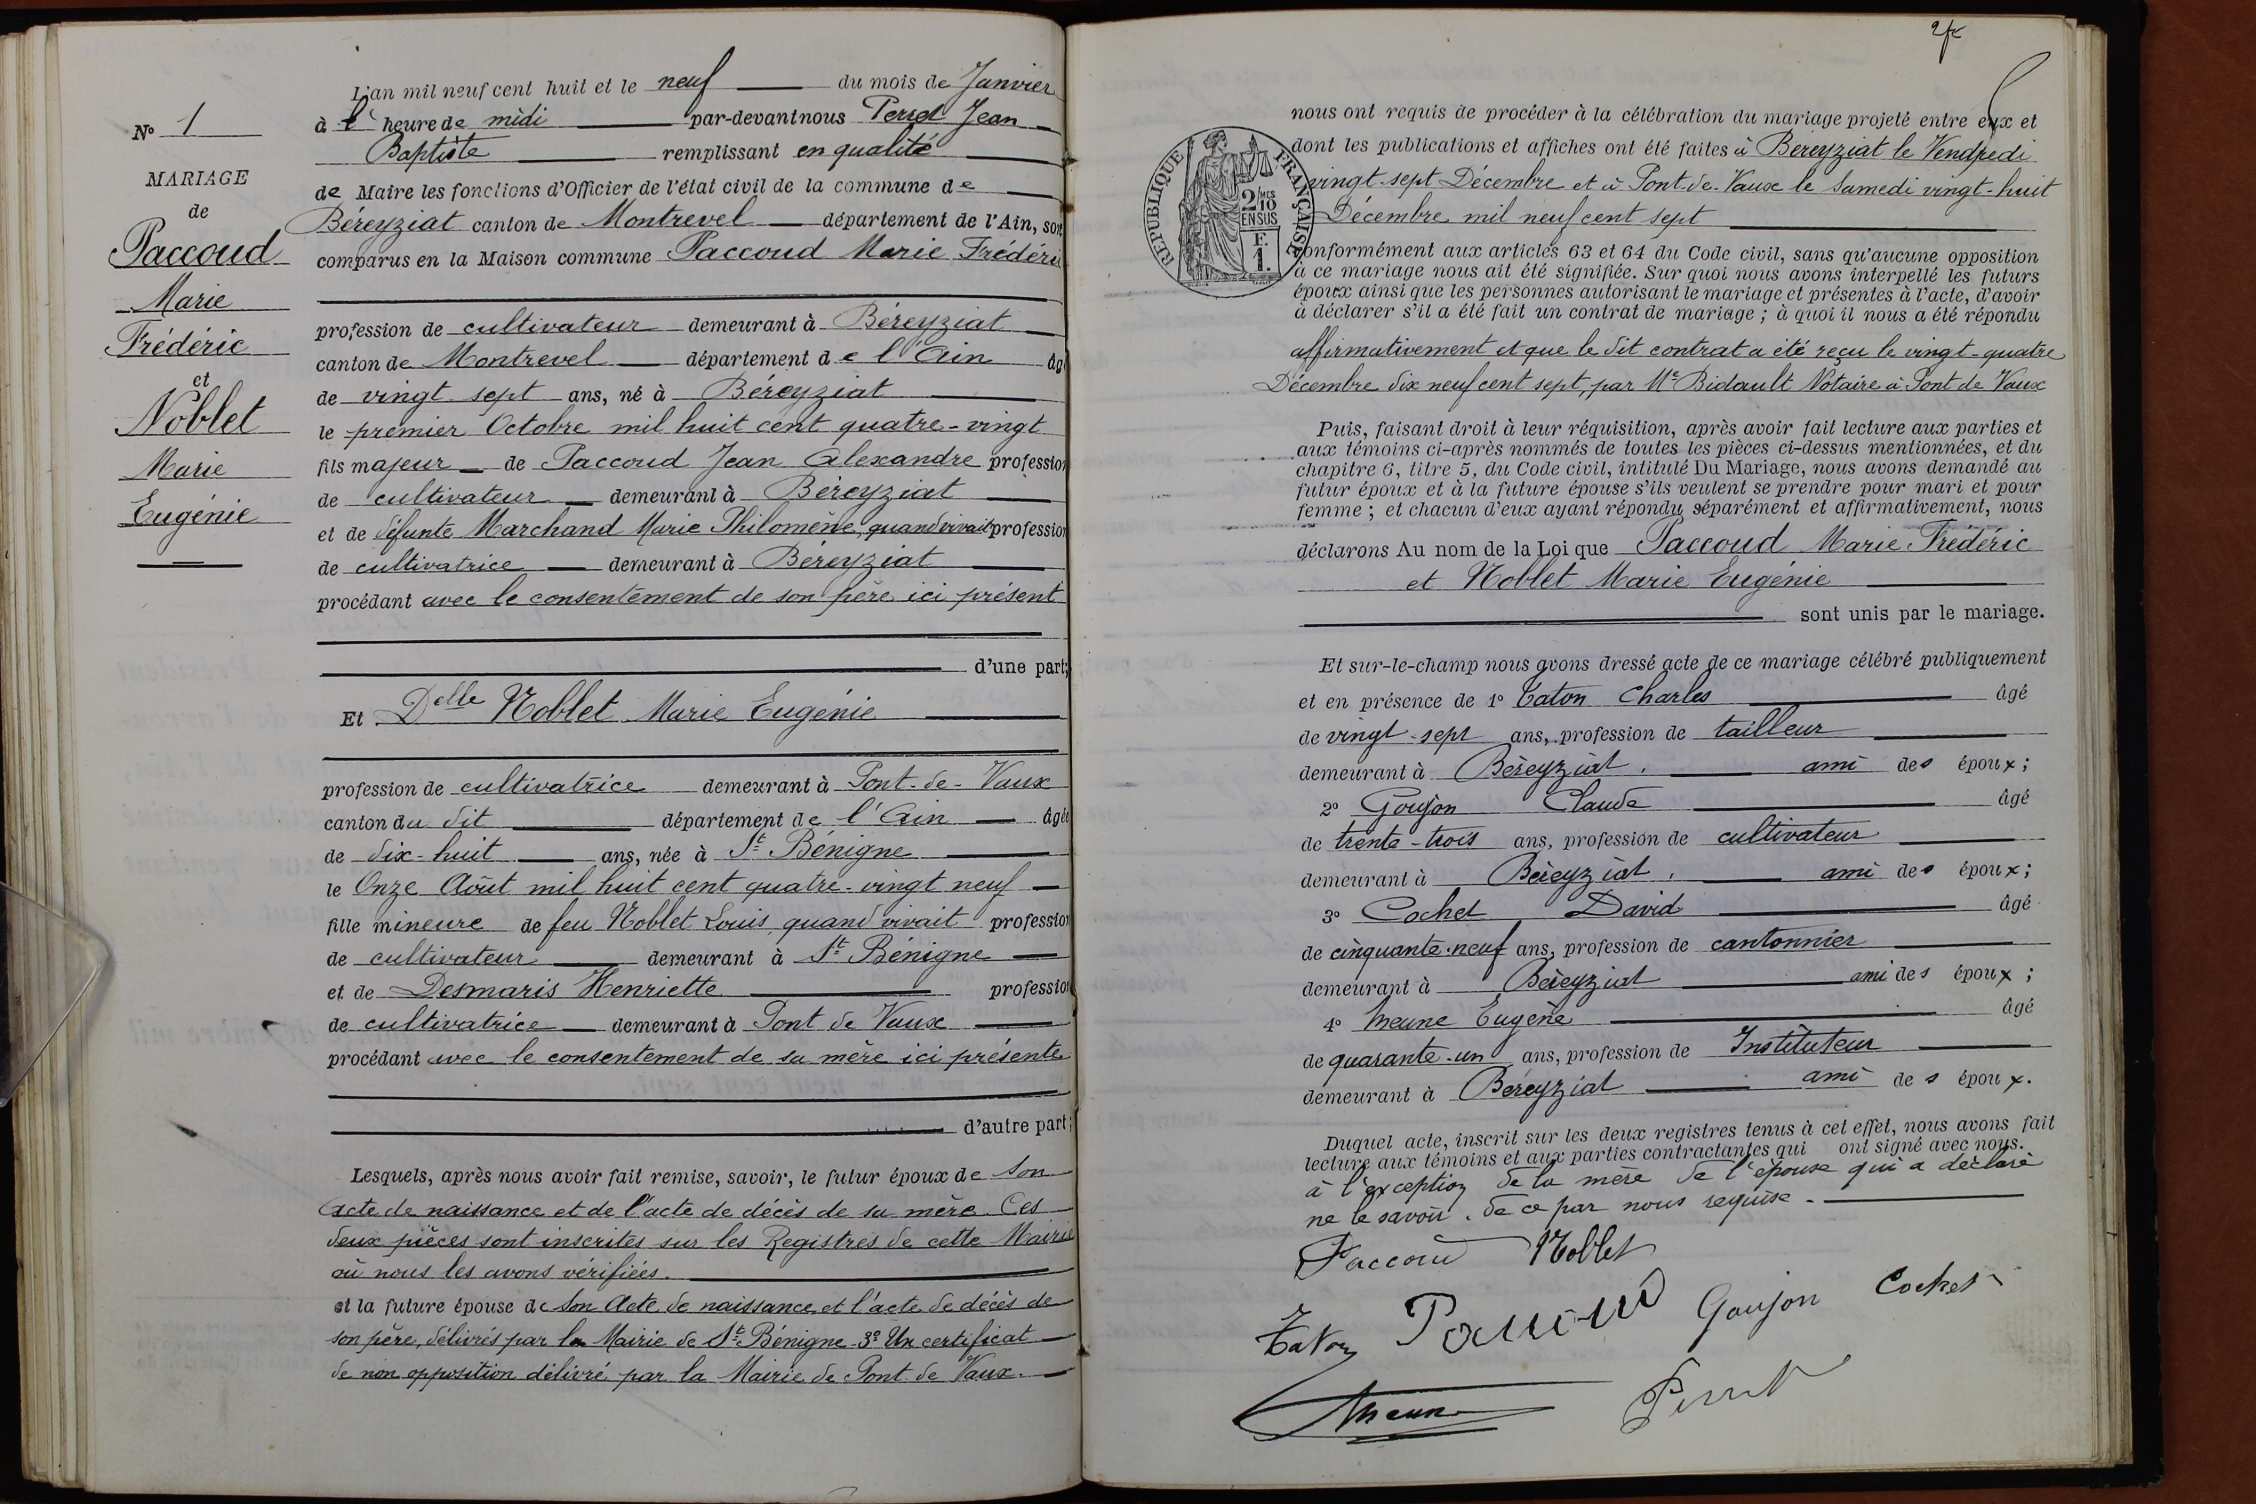 L'an mil neuf cent huit et le neuf du mois de Janvier
à l'heure de midi par-devant nous Perret Jean
Baptiste remplissant en qualité
de Maire les fonctions d'Officier de l'état civil de la commune de
Béreyziat canton de Montrevel département de l'Ain, sont
comparus en la Maison commune Paccoud Marie Frédéric
profession de cultivateur demeurant à Béreyziat
canton de Montrevel département de l'Ain âgé
de vingt sept ans, né à Béreyziat
le premier Octobre mil huit cent quatre-vingt
fils majeur de Paccoud Jean Alexandre profession
de cultivateur demeurant à Béreyziat
et de défunte Marchand Marie Philomène, quand vivait profession
de cultivatrice demeurant à Béreyziat
procédant avec le consentement de son père ici présent
d'une part;
Et Delle Noblet Marie Eugénie
profession de cultivatrice demeurant à Pont-de-Vaux
canton du dit département de l'Ain âgée
de dix-huit ans, née à St Bénigne
le Onze Août mil huit cent quatre-vingt neuf
fille mineure de feu Noblet Louis, quand vivait profession
de cultivateur demeurant à St Bénigne
et de Desmaris Henriette profession
de cultivatrice demeurant à Pont de Vaux
procédant avec le consentement de sa mère ici présente
d'autre part;
Lesquels, après nous avoir fait remise, savoir, le futur époux de son
acte de naissance et de l'acte de décès de sa mère. Ces
deux pièces sont inscrites sur les Registres de cette Mairie
où nous les avons vérifiées.
et la future épouse de son Acte de naissance et l'acte de décès de
son père, délivrés par la Mairie de St Bénigne 3º Un certificat
de non opposition délivré par la Mairie de Pont de Vaux.
Nº 1
MARIAGE
de
Paccoud
Marie
Frédéric
et
Noblet
Marie
Eugénie
nous ont requis de procéder à la célébration du mariage projeté entre eux et
dont les publications et affiches ont été faites à Béreyziat le Vendredi
vingt-sept Décembre et à Pont-de-Vaux le Samedi vingt-huit
Décembre mil neuf cent sept
conformément aux articles 63 et 64 du Code civil, sans qu'aucune opposition
à ce mariage nous ait été signifiée. Sur quoi nous avons interpellé les futurs
époux ainsi que les personnes autorisant le mariage et présentes à l'acte, d'avoir
à déclarer s'il a été fait un contrat de mariage ; à quoi il nous a été répondu
affirmativement et que le dit contrat a été reçu le vingt-quatre
Décembre dix neuf cent sept, par Me Bidault Notaire à Pont de Vaux
Puis, faisant droit à leur réquisition, après avoir fait lecture aux parties et
aux témoins ci-après nommés de toutes les pièces ci-dessus mentionnées, et du
chapitre 6, titre 5, du Code civil, intitulé Du Mariage, nous avons demandé au
futur époux et à la future épouse s'ils veulent se prendre pour mari et pour
femme ; et chacun d'eux ayant répondu séparément et affirmativement, nous
déclarons Au nom de la Loi que Paccoud Marie Frédéric
et Noblet Marie Eugénie
sont unis par le mariage.
Et sur-le-champ nous avons dressé acte de ce mariage célébré publiquement
et en présence de 1º Taton Charles âgé
de vingt-sept ans, profession de tailleur
demeurant à Béreyziat. ami des époux;
2º Goujon Claude âgé
de trente-trois ans, profession de cultivateur
demeurant à Béreyziat. ami des époux;
3º Cochet David âgé
de cinquante-neuf ans, profession de cantonnier
demeurant à Béreyziat ami des époux;
4º Meune Eugène âgé
de quarante-un ans, profession de Instituteur
demeurant à Béreyziat ami des époux.
Duquel acte, inscrit sur les deux registres tenus à cet effet, nous avons fait
lecture aux témoins et aux parties contractantes qui ont signé avec nous.
à l'exception de la mère de l'épouse qui a déclaré
ne le savoir. de ce par nous requise.
Paccoud Noblet
Taton Paccoud Goujon Cochet
Meune Perret
RÉPUBLIQUE FRANÇAISE
2/10MES
EN SUS
F.
1.